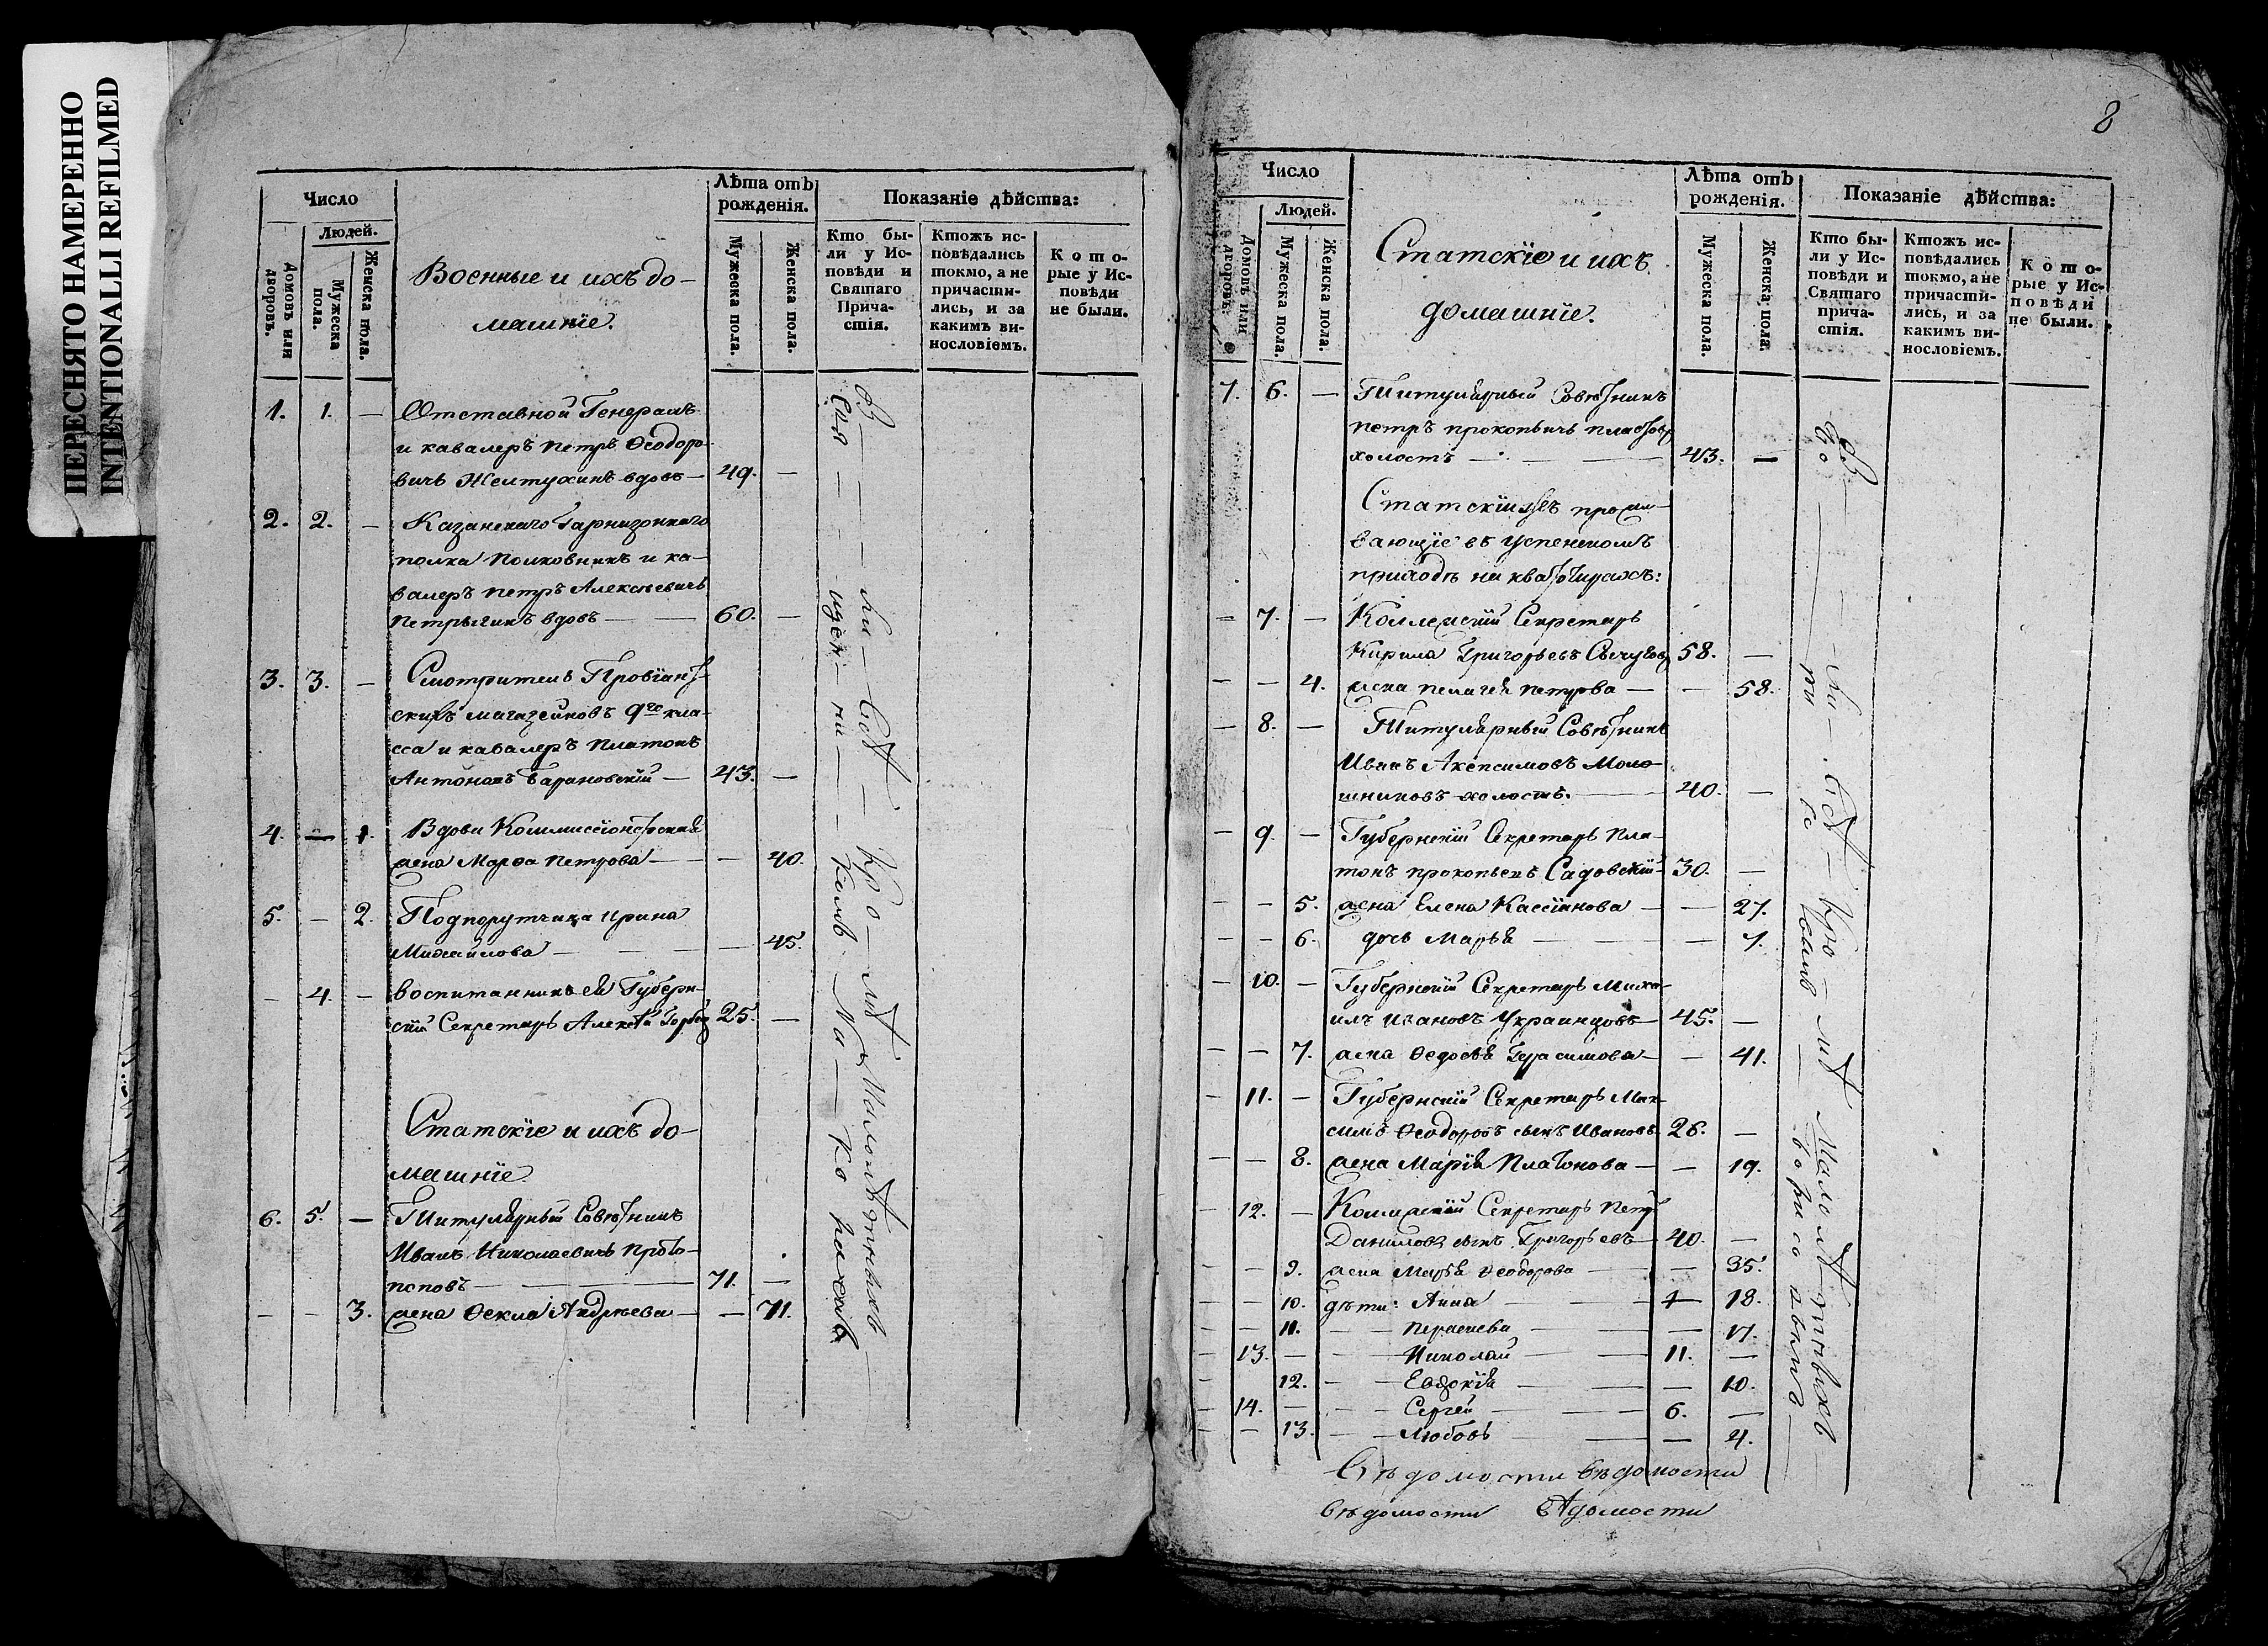 ПЕРЕСНЯТО НАМЕРЕННО
INTENTIONALLI REFILMED
Число
Людей.
Домовъ или дворовъ.
Мужеска пола.
Женска пола.
Военные и ихъ до-
машніе.
Лѣта отъ рожденія.
Мужеска пола.
Женска пола.
Показаніе дѣйства:
Кто бы-
ли у Ис-
повѣди и
Святаго
Прича-
стія.
Ктожъ ис-
повѣдались
токмо, а не
причасти-
лись, и за
какимъ ви-
нословіемъ.
Кото-
рые у Ис-
повѣди
не были.
1. 1. — Отставной Генералъ
и кавалеръ Петръ Ѳеодоро-
вичь Желтухинъ вдовъ — 49. —
2. 2. — Казанскаго Гарнизоннаго
полка Полковникъ и ка-
валеръ Петръ Алексѣевичь
Петрыгинъ вдовъ — — 60. —
3. 3. — Смотритель Провіант-
скихъ магазейновъ 9го кла-
сса и кавалеръ Платонъ
Антоновъ Барановскій — 43. —
4. — 1. Вдова Коммиссіонерская
жена Марѳа Петрова — — 40.
5. — 2. Подпорутчица Ирина
Михайлова — — — 45.
— 4. — воспитанникъ ея Губерн-
скій Секретарь Алексѣй 25. —
Статскіе и ихъ до-
машніе
6. 5. — Титулярный Совѣтникъ
Иванъ Николаевичь Прото-
поповъ — 71. —
— — 3. жена Ѳекла Андрѣева — — 71.
8
Число
Людей.
Домовъ или дворовъ.
Мужеска пола.
Женска пола.
Статскіе и ихъ
домашніе.
Лѣта отъ рожденія.
Мужеска пола.
Женска пола.
Показаніе дѣйства:
Кто бы-
ли у Ис-
повѣди и
Святаго
прича-
стія.
Ктожъ ис-
повѣдались
токмо, а не
причасти-
лись, и за
какимъ ви-
нословіемъ.
Кото-
рые у Ис-
повѣди
не были.
7. 6. — Титулярный Совѣтникъ
Петръ Прокопьичь
холостъ — 43. —
Статскія прожи-
вающіе въ Успенскомъ
приходѣ на квартирахъ:
— 7. — Коллежскій Секретарь
Кирила Григорьевъ 58. —
— — 4. жена Пелагея Петрова — — 58.
— 8. — Титулярный Совѣтникъ
Иванъ Акепсимовъ Моло-
шниковъ холостъ. — 40. —
— 9. — Губернскій Секретарь Пла-
тонъ Прокопьевъ Садовскій 30. —
— — 5. жена Елена Кассіанова — — 27.
— — 6. дочь Марья — — 7.
— 10. — Губернскій Секретарь Миха-
илъ Ивановъ Украинцовъ — 45. —
— — 7. жена Ѳедосья Герасимова — — 41.
— 11. — Губернскій Секретарь Мак-
симъ Ѳеодоровъ сынъ Ивановъ 26. —
— — 8. жена Марія Платонова — — 19.
— 12. — Коллежскій Секретарь Петръ
Даниловъ сынъ Григорьевъ — 40. —
— — 9. жена Марья Ѳеодорова — — 35.
— — 10. дѣти: Анна — — 18.
— — 11. — — Парасковья — — 17.
— 13. — — Николай — 11. —
— — 12. — — Евдокія — — 10.
— 14. — — — Сергей — 6. —
— — 13. — — Любовь — — 4.
Вѣдомости вѣдомости
вѣдомости вѣдомости